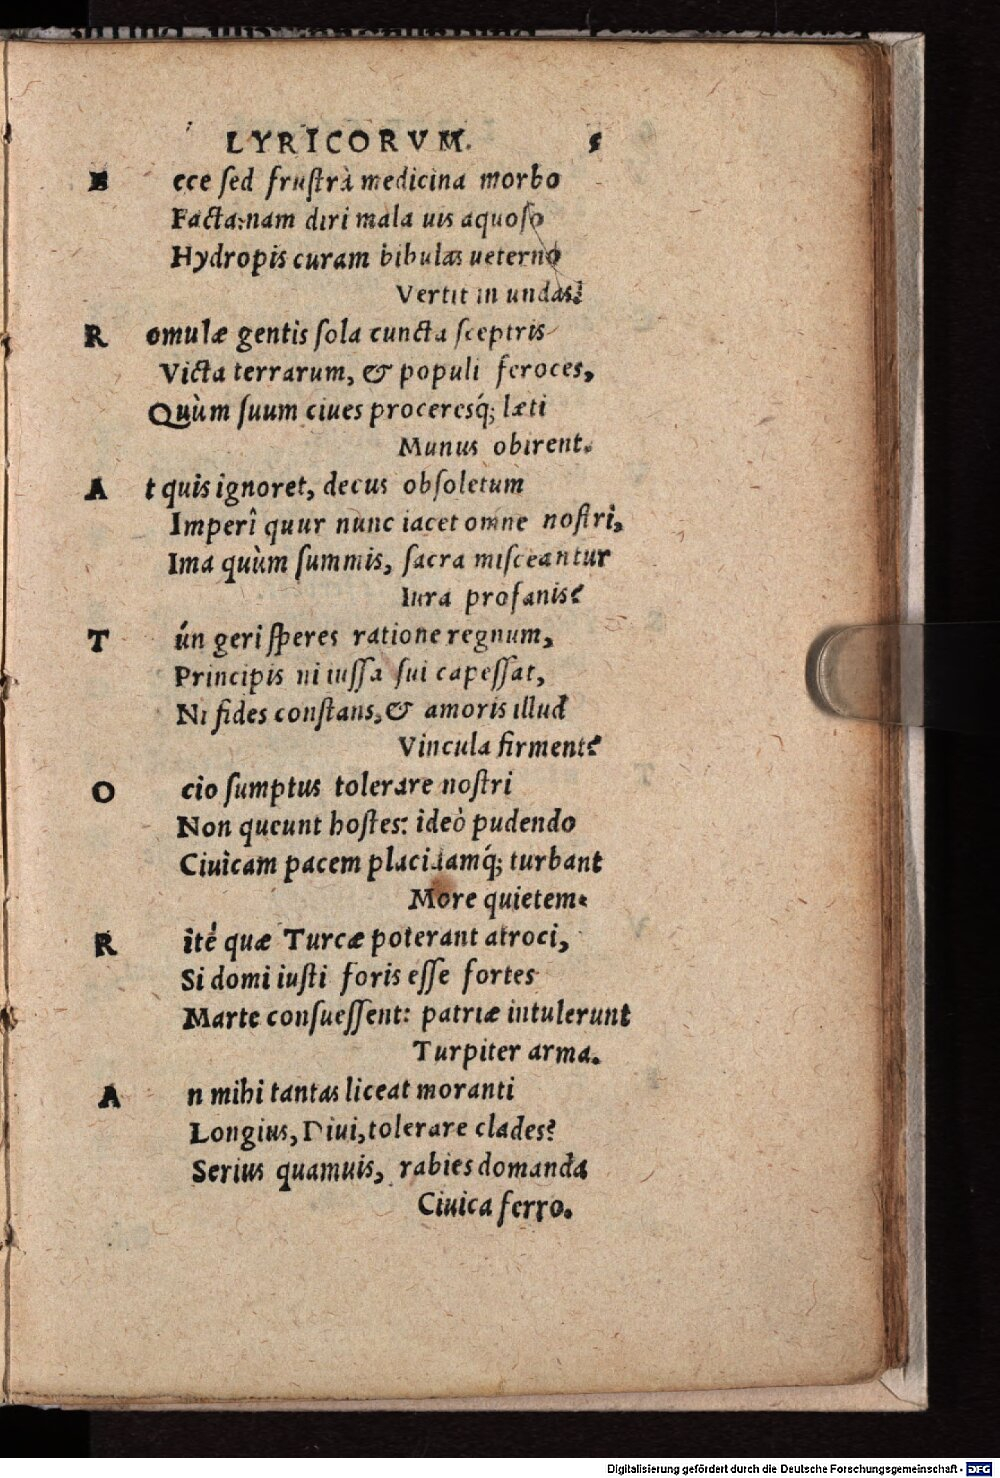 LYRICORVM. 5
E ece sed frustrà medicina morbo
Facta: nam diri mala uis aquoso
Hydropis curam bibulas ueterno
Vertit in undas?
R omulæ gentis sola cuncta sceptris
Victa terrarum, & populi feroces,
Quùm suum ciues proceresq́; læti
Munus obirent.
A t quis ignoret, decus obsoletum
Imperî quur nunc iacet omne nostri,
Ima quùm summis, sacra misceantur
Iura profanis?
T ún geri speres ratione regnum,
Principis ni iussa sui capessat,
Ni fides constans, & amoris illud
Vincula firment?
O cio sumptus tolerare nostri
Non queunt hostes: ideò pudendo
Ciuicam pacem placidamq́; turbant
More quietem.
R ité quæ Turcæ poterant atroci,
Si domi iusti foris esse fortes
Marte consuessent: patriæ intulerunt
Turpiter arma.
A n mihi tantas liceat moranti
Longius, Diui, tolerare clades?
Serius quamuis, rabies domanda
Ciuica ferro.
Digitalisierung gefördert durch die Deutsche Forschungsgemeinschaft - DFG